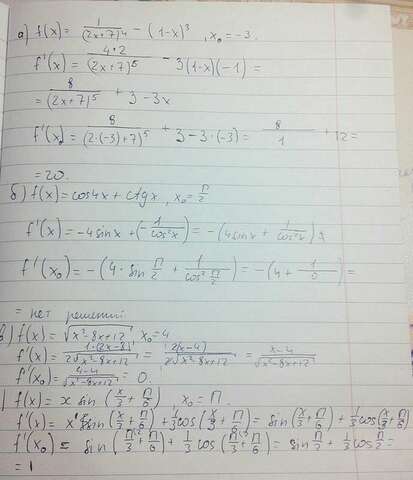 а) f(x) = 1/(2x+7)⁴ - (1-x)³, x₀ = -3.
f'(x) = 4·2/(2x+7)⁵ - 3(1-x)(-1) =
= 8/(2x+7)⁵ + 3 - 3x
f'(x₀) = 8/(2·(-3)+7)⁵ + 3 - 3·(-3) = 8/1 + 12 =
= 20.
б) f(x) = cos4x + ctgx, x₀ = П/2
f'(x) = -4sinx + (-1/cos²x) = -(4sinx + 1/cos²x)
f'(x₀) = -(4·sin П/2 + 1/cos² П/2) = -(4 + 1/0) =
= нет решений
в) f(x) = √(x²-8x+12) x₀ = 4
f'(x) = 1·(2x-8)/2√(x²-8x+12) = 2(x-4)/2√(x²-8x+12) = x-4/√(x²-8x+12)
f'(x₀) = 4-4/√(x²-8x+12) = 0.
) f(x) = x sin (x/3 + П/6), x₀ = П.
f'(x) = x' sin (x/3 + П/6) + 1/3 cos (x/3 + П/6) = sin (x/3 + П/6) + 1/3 cos (x/3 + П/6)
f'(x₀) = sin (П/3 + П/6) + 1/3 cos (П/3 + П/6) = sin П/2 + 1/3 cos П/2 =
= 1